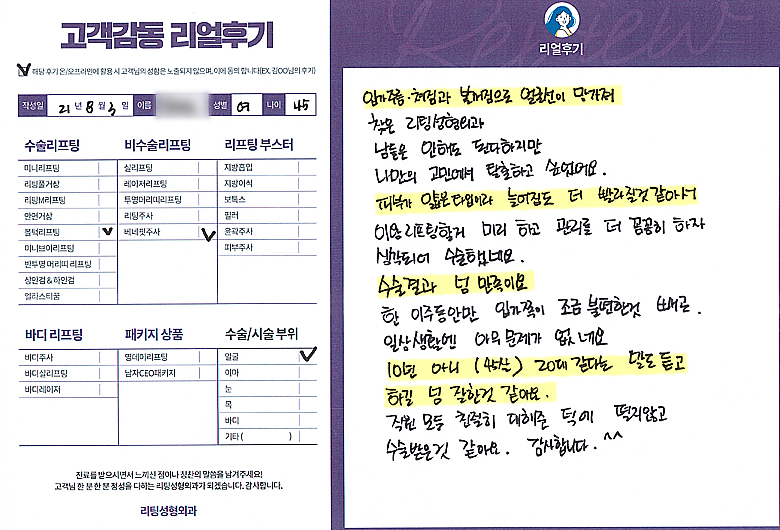 고객감동 리얼후기
해당 후기 온/오프라인에 활용 시 고객님의 성함은 노출되지 않으며, 이에 동의 합니다(EX. 김OO님의 후기)
작성일 21년 8월 3일 이름 성별 여 나이 45
수술리프팅
미니리프팅
리팅풀거상
리팅M리프팅
안면거상
울턱리프팅
미니브이리프팅
반투명 머리띠 리프팅
상안검 & 하안검
얼라스티꿈
비수술리프팅
실리프팅
레이저리프팅
투명이리띠리프팅
리팅주사
비네핏주사
리프팅 부스터
지방흡입
지방이식
보톡스
필러
윤곽주사
피부주사
바디 리프팅
바디주사
바디실리프팅
바디레이저
패키지 상품
영데이리프팅
남자CEO패키지
수술/시술 부위
얼굴
이마
눈
목
바디
기타 ( )
진료를 받으시면서 느끼신 점이나 칭찬의 말씀을 남겨주세요!
고객님 한 분 한 분 정성을 다하는 리팅성형외과가 되겠습니다. 감사합니다.
리팅성형외과
Review
리얼후기
입가주름·처짐과 볼꺼짐으로 얼굴선이 망가져
찾은 리팅성형외과
남들은 안해도 된다하지만
나만의 고민에서 탈출하고 싶었어요.
피부가 얇은타입이라 늘어짐도 더 빨라질것 같아서
이왕 리프팅할거 미리 하고 관리를 더 꼼꼼히 하자
생각되어 수술하였네요.
수술결과 넘 만족이요
한 이주동안만 입가쪽이 조금 불편한것 빼곤.
일상생활엔 아무 문제가 없네요
10년 아니 (45살) 20대 같다는 말도 듣고
하길 넘 잘한것 같아요.
직원 모두 친절히 대해준 덕에 떨지않고
수술받은것 같아요. 감사합니다.^^